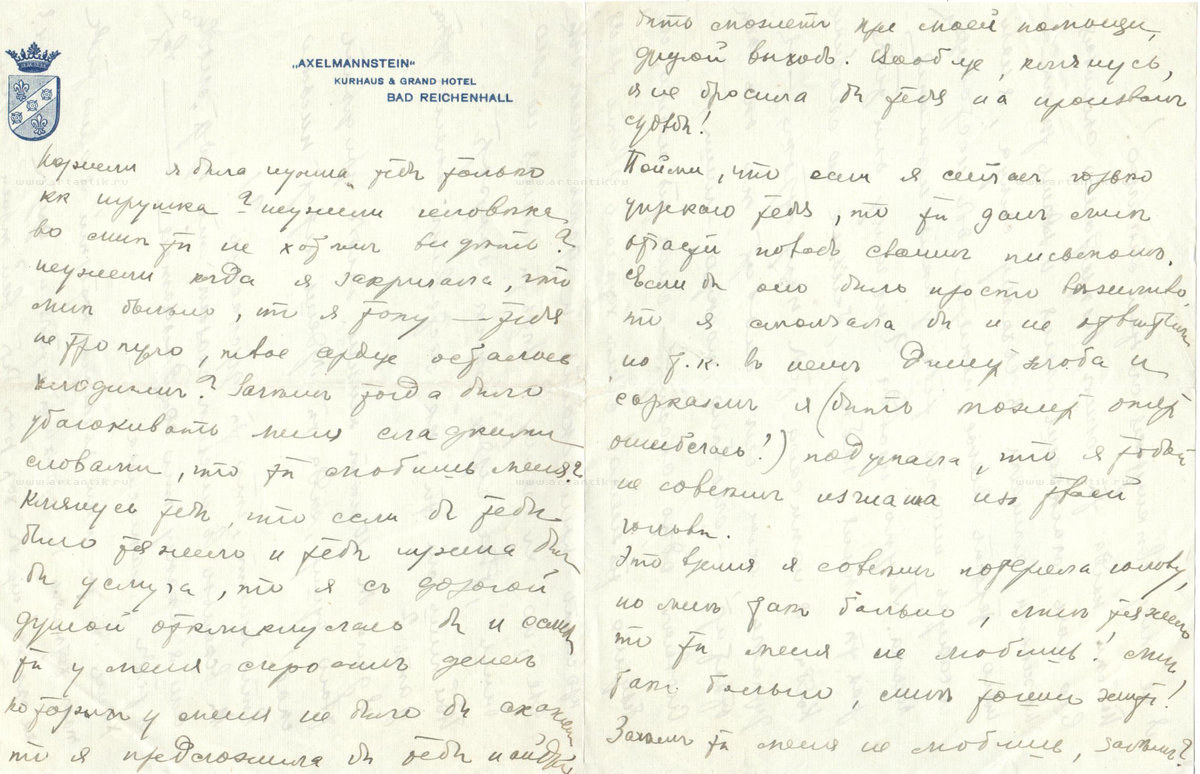 „AXELMANNSTEIN“
KURHAUS & GRAND HOTEL
BAD REICHENHALL
я была нужна тебѣ только
как игрушка? неужели человѣка
во мнѣ ты не хотѣлъ видѣть?
неужели когда я закричала, что
мнѣ больно, что я тону — тебя
не тронуло, твое сердце осталось
холоднымъ? Зачѣмъ тогда было
убаюкивать меня сладкими
словами, что ты любишь меня?
Клянусь тебѣ, что если бъ тебѣ
было тяжело и тебѣ нужна была
бы услуга, то я съ дорогой
душой откликнулась бы и если
ты у меня спросилъ денегъ
которыхъ у меня не было бы
то я предложила бы тебѣ найти
быть можетъ при моей помощи,
другой выходъ. Вообще, клянусь,
я не бросила бы тебя на произволъ
судьбы!
Пойми, что если я сейчасъ горько
упрекаю тебя, то ты далъ мнѣ
отчасти поводъ своимъ письмомъ.
Если бы оно было просто вѣжливо
то я смолчала бы и не отвѣтила
но т.к. в немъ дышетъ злоба и
сарказмъ я (быть можетъ опять
ошиблась!) подумала, что я тобой
не совсѣмъ изгнана изъ твоей
головы.
Это время я совсѣмъ потеряла голову,
но мнѣ такъ больно, мнѣ тяжело
что ты меня не любишь! Мнѣ
такъ больно, мнѣ тошно жить!
Зачѣмъ ты меня не любишь, зачѣмъ?
www.artantik.ru
www.artantik.ru
www.artantik.ru
www.artantik.ru